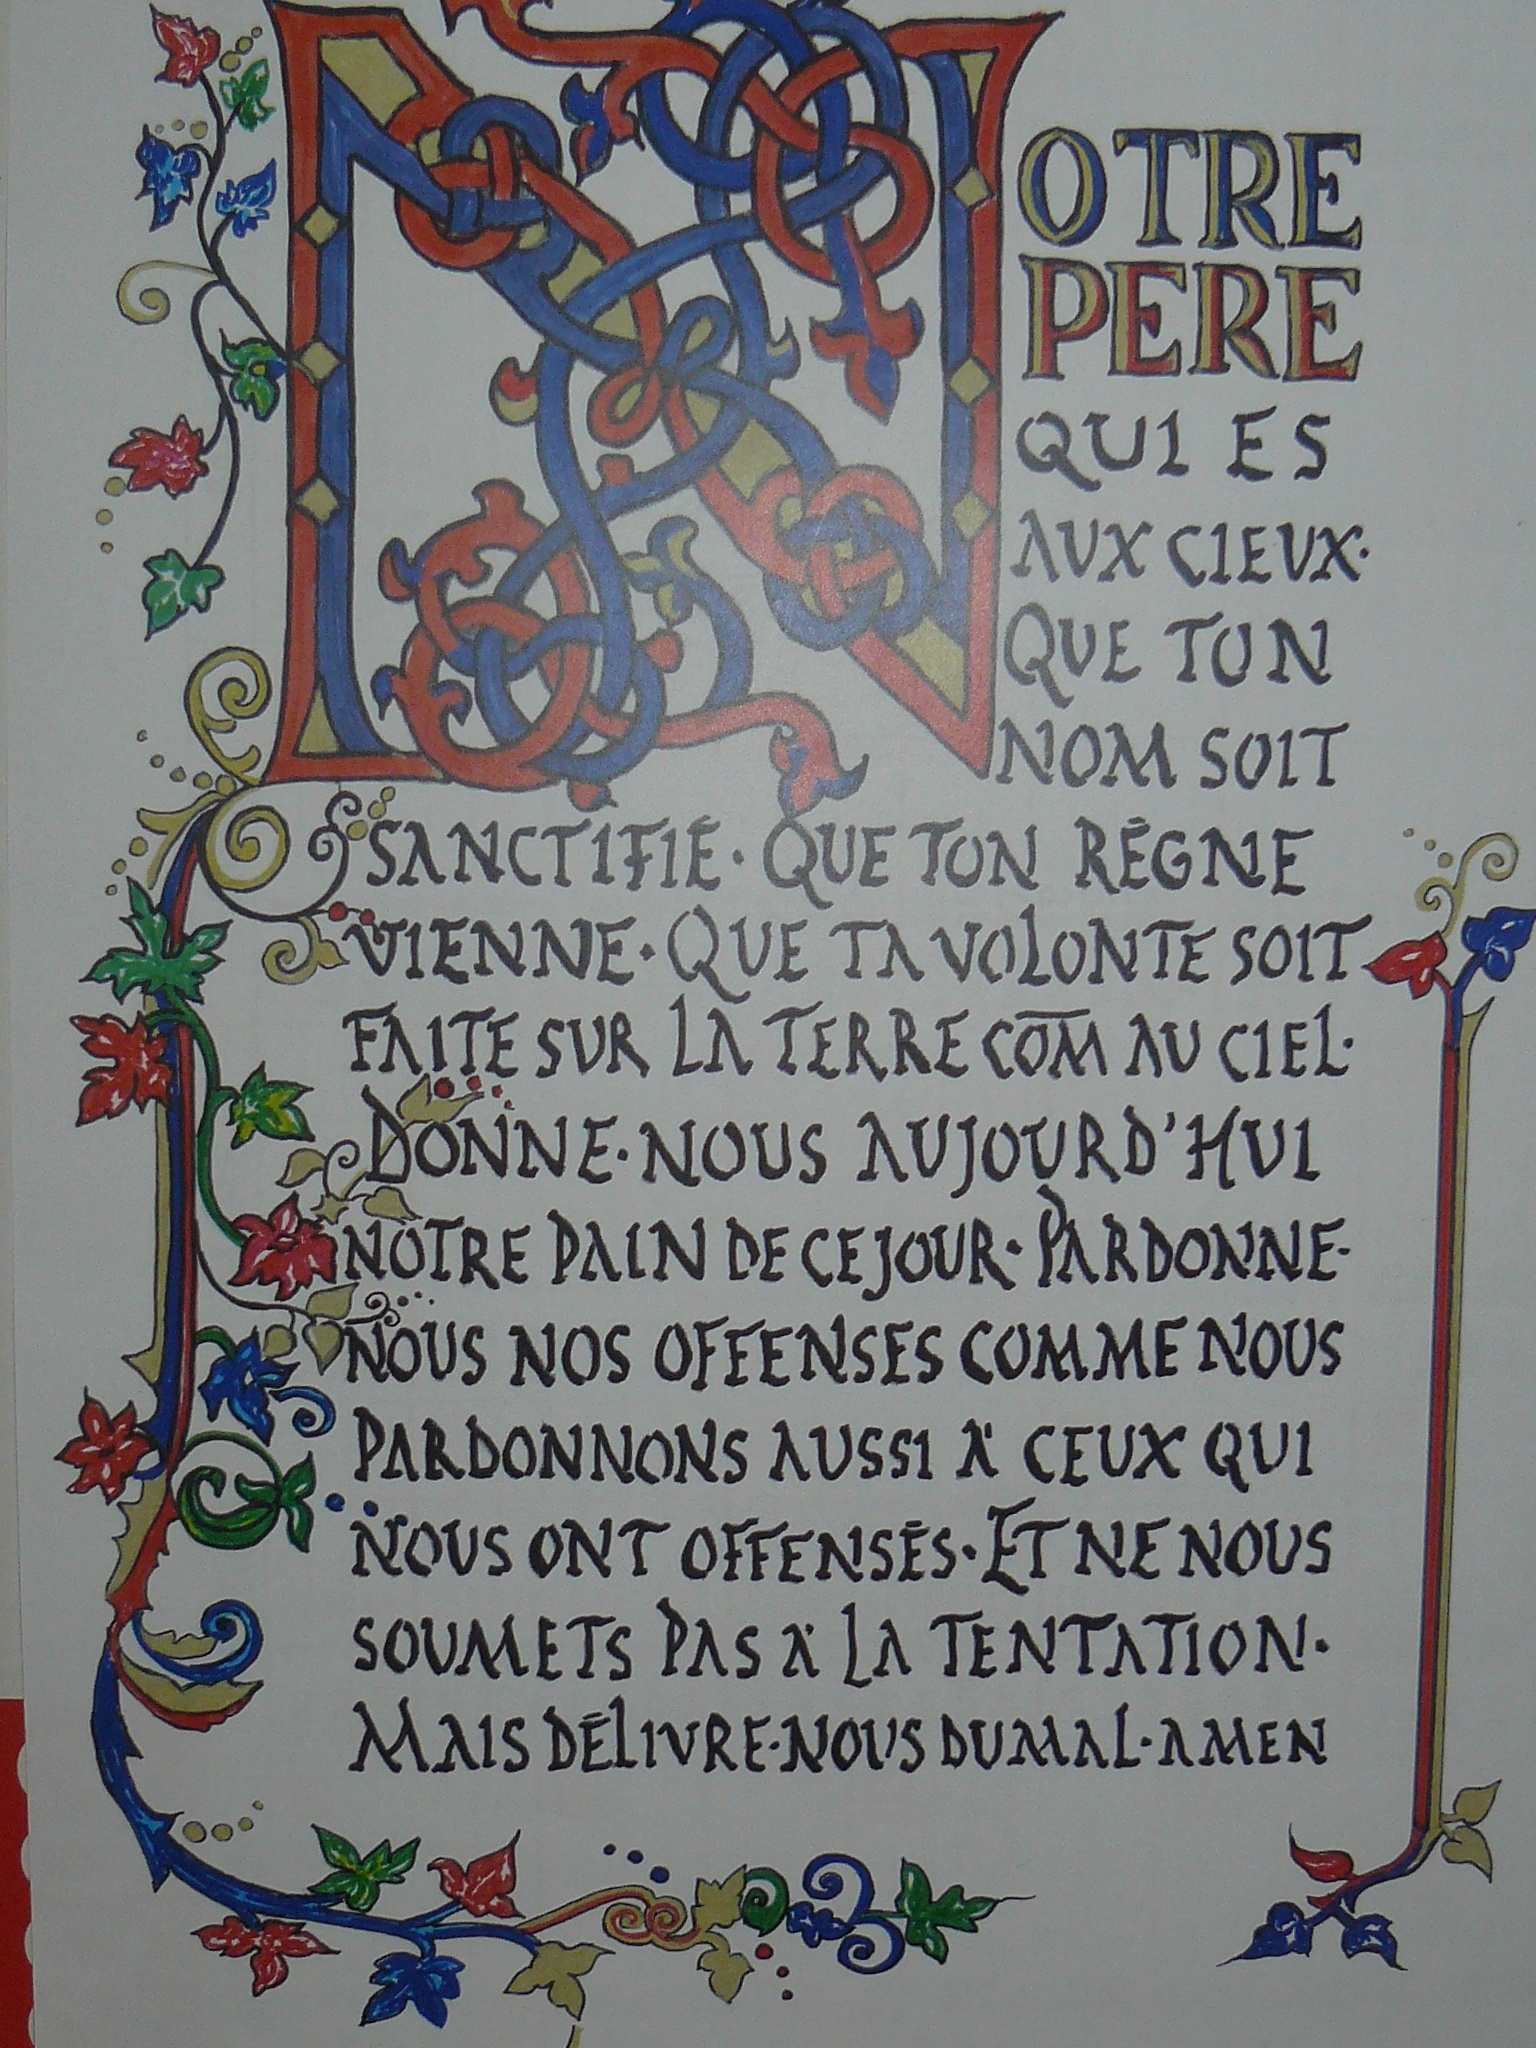 NOTRE
PERE
QUI ES
AUX CIEUX·
QUE TON
NOM SOIT
SANCTIFIÉ· QUE TON RÉGNE
VIENNE· QUE TA VOLONTE SOIT
FAITE SUR LA TERRE COM̄ AU CIEL·
DONNE·NOUS AUJOURD'HUI
NOTRE PAIN DE CE JOUR· PARDONNE·
NOUS NOS OFFENSES COMME NOUS
PARDONNONS AUSSI À CEUX QUI
NOUS ONT OFFENSÉS· ET NE NOUS
SOUMETS PAS À LA TENTATION·
MAIS DÉLIVRE·NOUS DU MAL·AMEN